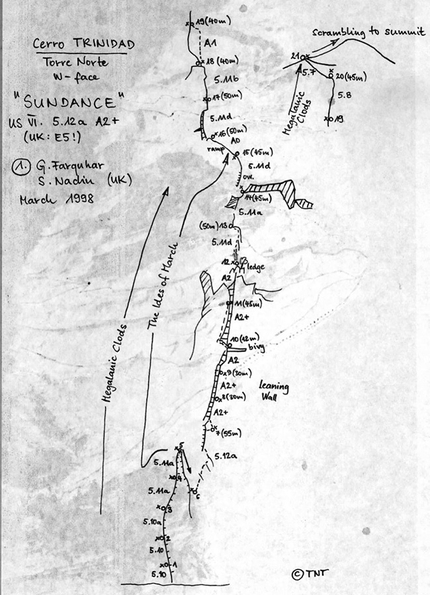 Cerro TRINIDAD
Torre Norte
W-face
"SUNDANCE"
US VI. 5.12a A2+
(UK: E5!)
1. G. Farquhar
S. Nadin (UK)
March 1998
Scrambling to summit
21
5.7
20(45m)
5.8
19
Megalanic Clods
19(40m)
A1
18(40m)
5.11b
17(50m)
5.11d
16(50m)
A0
ramp
15(45m)
5.11d
OW
14(45m)
5.11a
(50m)13
5.11d
12
ledge
A2
11(45m)
A2+
10(42m)
bivy
A2
9(30m)
A2+
8(30m)
A2+
Leaning
Wall
7(55m)
5.12a
The Ides of March
Megalanic Clods
5
5.11a
4
6
5.11a
3
5.10a
2
5.10
1
5.10
© TNT